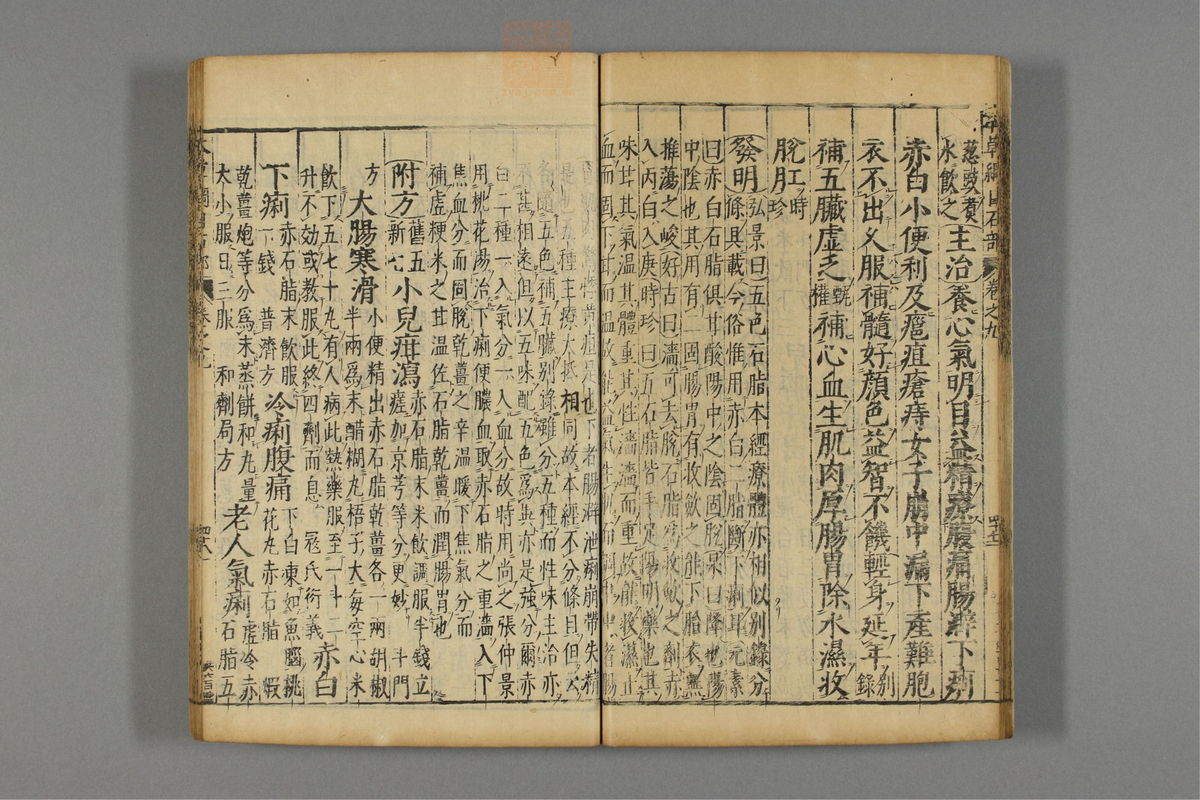 葱豉煮
水飲之
主治養心氣明目益精療腹痛腸澼下痢
赤白小便利及癰疽瘡痔女子崩中漏下產難胞
衣不出久服補髓好顏色益智不饑輕身延年別錄
補五臟虛乏甄權補心血生肌肉厚腸胃除水濕收
脫肛時珍
發明弘景曰五色石脂本經療體亦相似別錄分
條具載今俗惟用赤白二脂斷下痢耳元素
曰赤白石脂俱甘酸陽中之陰固脫杲曰降也陽
中陰也其用有二固腸胃有收斂之能下胎衣無
推蕩之峻好古曰澀可去脫石脂為收斂之劑赤
入丙白入庚時珍曰五石脂皆手足陽明藥也其
味甘其氣溫其體重其性澀澀而重故能收濕止
血而固下甘而溫故能益氣生肌而調中中者腸
下者腸澼泄痢崩帶失精
是也五種主療大抵相同故本經不分條目但云
各隨五色補五臟別錄雖分五種而性味主治亦
不甚相遠但以五味配五色為異亦是強分爾赤
白二種一入氣分一入血分故時用尚之張仲景
用桃花湯治下痢便膿血取赤石脂之重澀入下
焦血分而固脫乾薑之辛溫暖下焦氣分而
補虛粳米之甘溫佐石脂乾薑而潤腸胃也
附方舊五新七小兒疳瀉赤石脂末米飲調服半錢立
瘥加京芎等分更妙斗門
方大腸寒滑小便精出赤石脂乾薑各一兩胡椒
半兩為末醋糊丸梧子大每空心米
飲下五七十丸有人病此熱藥服至一斗二
升不効或教服此終四劑而息寇氏衍義赤白
下痢赤石脂末飲服
一錢普濟方冷痢腹痛下白凍如魚腦桃
花丸赤石脂煆
乾薑炮等分為末蒸餅和丸量
大小服日三服和劑局方老人氣痢虛冷赤
石脂五